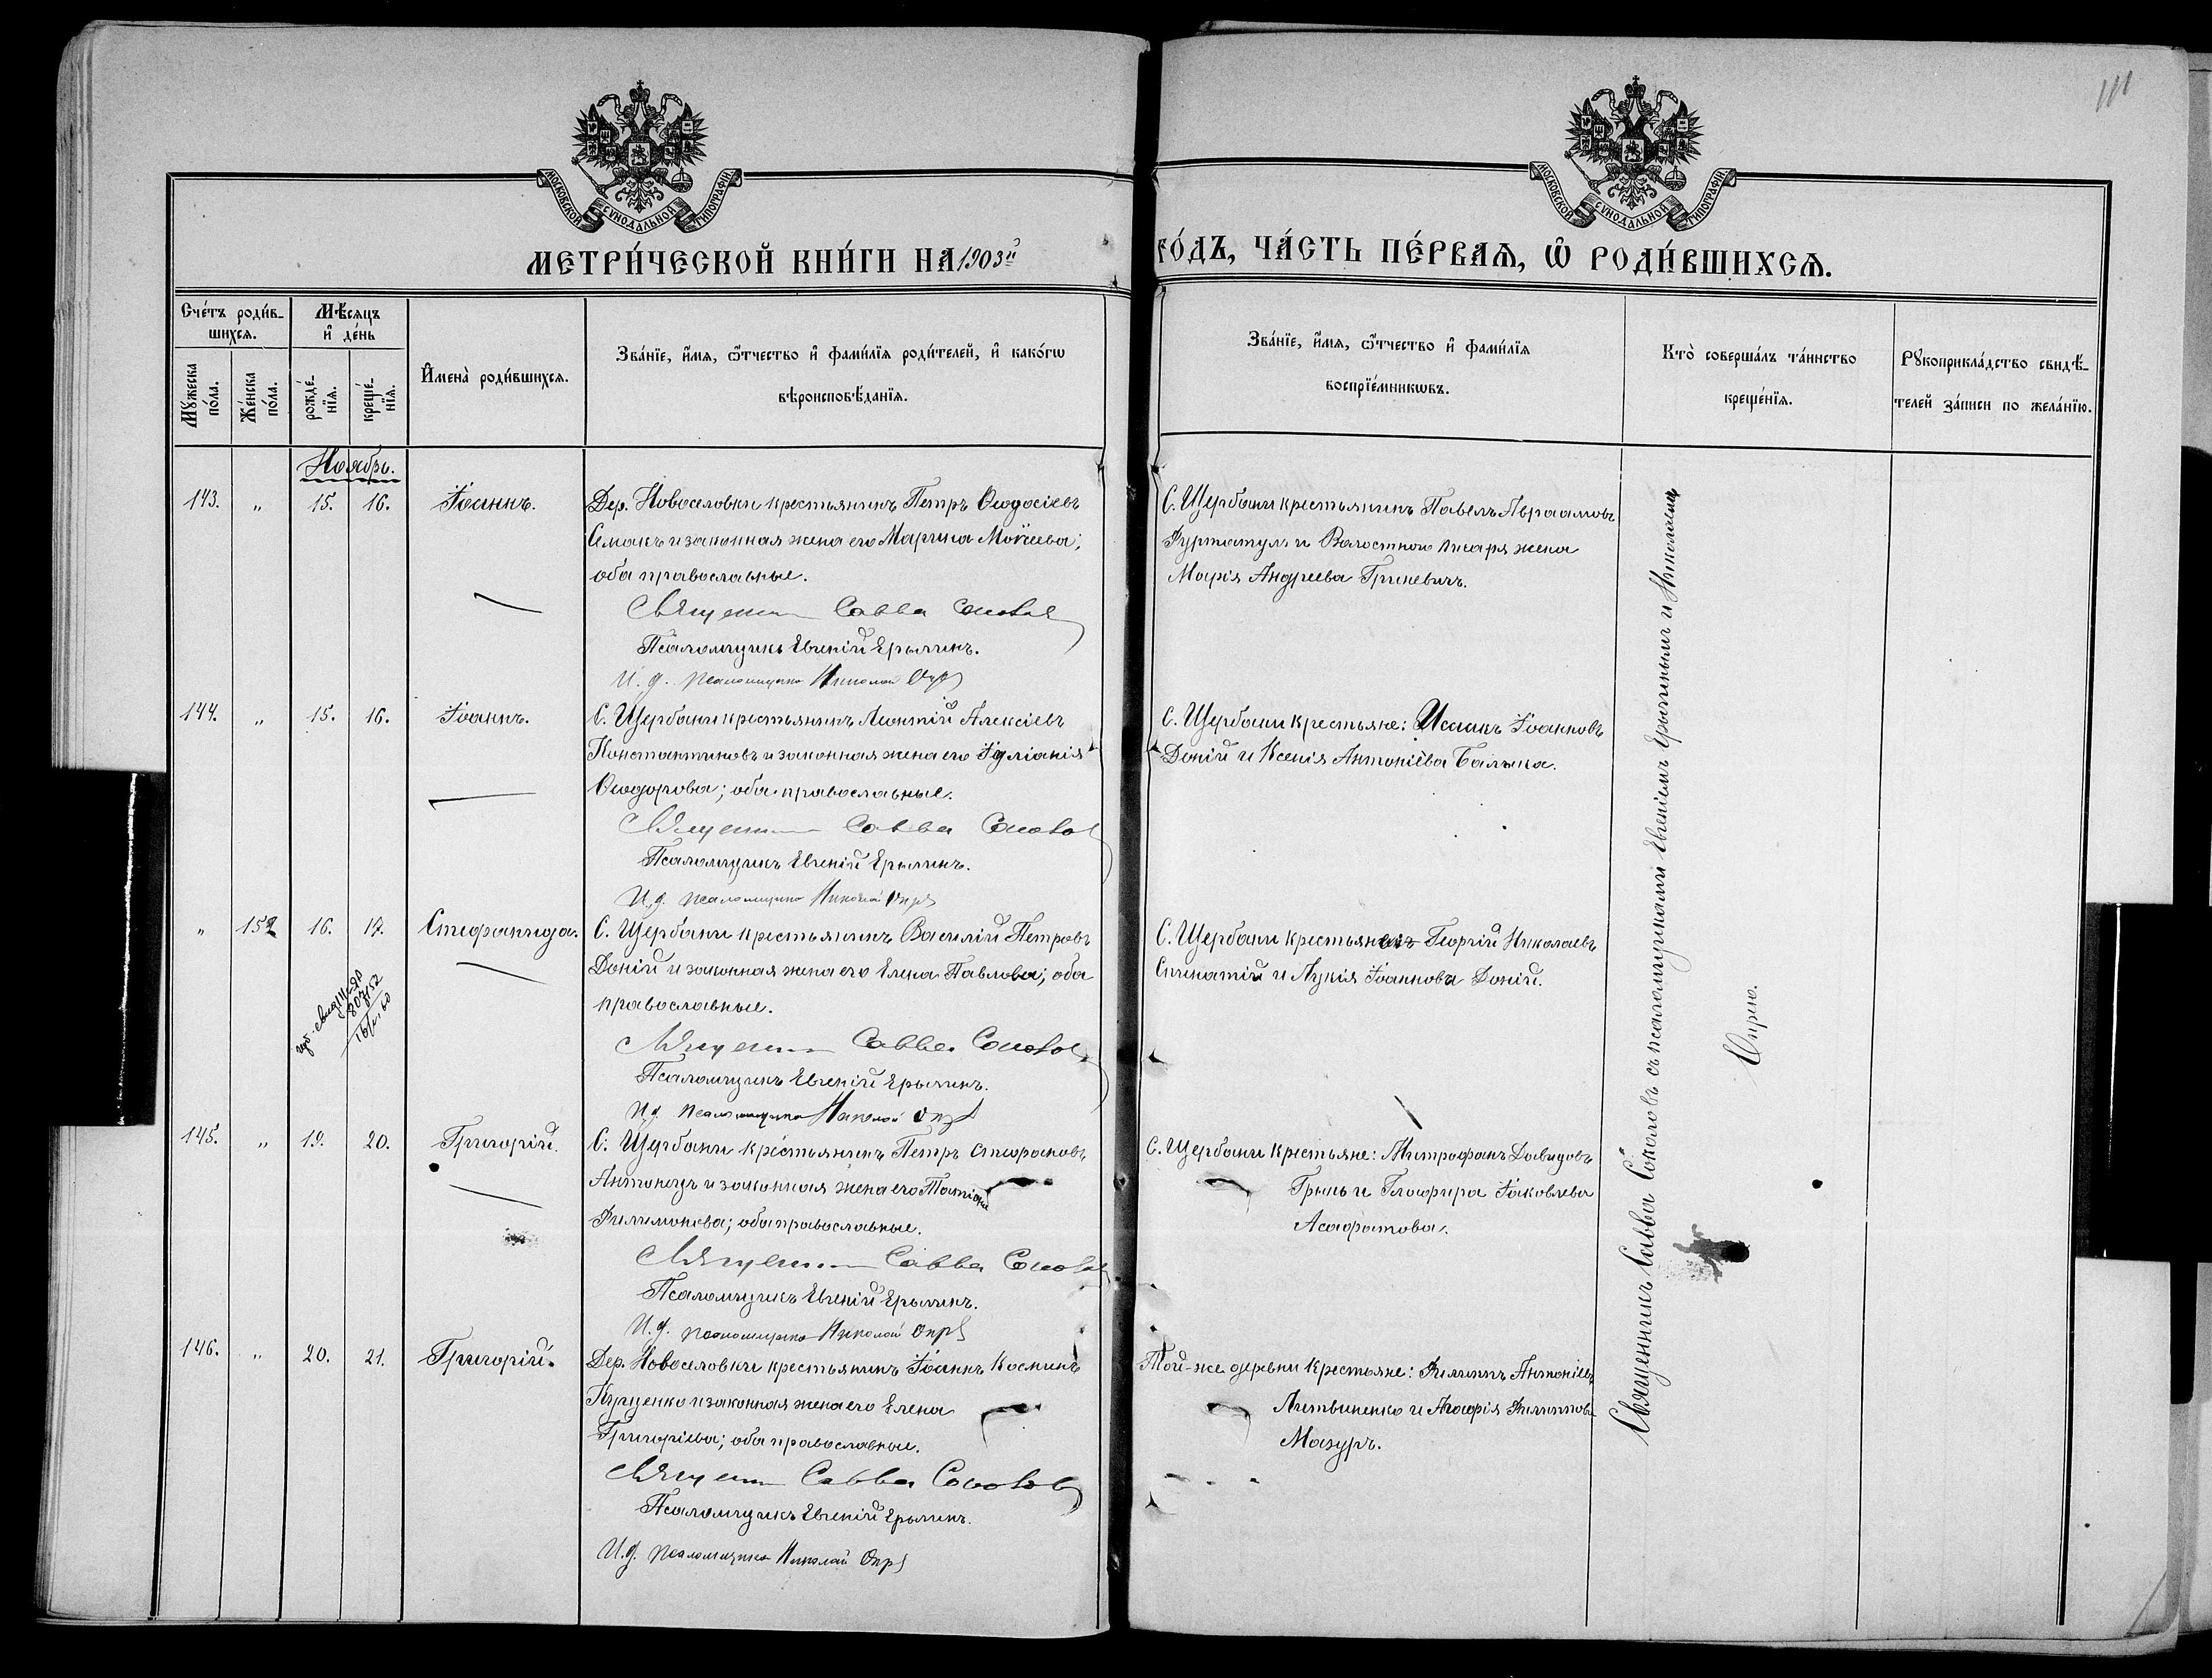 111
МОСКОВСКОЙ СѴНОДАЛЬНОЙ ТИПОГРАФІИ
МОСКОВСКОЙ СѴНОДАЛЬНОЙ ТИПОГРАФІИ
МЕТРИ́ЧЕСКОЙ КНИ́ГИ НА 1903й
ГО́ДЪ, ЧА́СТЬ ПЕ́РВАѦ, Ѽ РОДИ́ВШИХСѦ.
Сче́тъ роди́в-
шихсѧ.
Мꙋ́жеска
по́ла.
Же́нска
по́ла.
Мѣ́сѧцъ
и҆ де́нь
рожде́-
нїѧ.
креще́-
нїѧ.
И҆мена̀ роди́вшихсѧ.
Зва́нїе, и҆́мѧ, ѻ҆́тчество и҆ фами́лїѧ роди́телей, и҆ како́гѡ
вѣроисповѣ́данїѧ.
Зва́нїе, и҆́мѧ, ѻ҆́тчество и҆ фами́лїѧ
воспрїе́мникѡвъ.
Кто̀ соверша́лъ та́инство
креще́нїѧ.
Рꙋкоприкла́дство свидѣ́-
телей за́писи по жела́нїю.
Ноябрь.
143. " 15. 16. Іоаннъ.
Дер. Новоселовки крестьянинъ Петръ Ѳеодосіевъ
Семакъ и законная жена его Марина Моѵсеева;
оба православные.
Священник Савва Соколов
Псаломщикъ Евгеній Ерыминъ.
И. д. псаломщика Николай Опря
С. Щербани крестьянинъ Павелъ Авраамовъ
Фуртатулъ и Волостного писаря жена
Марія Андреева Гриневичъ.
144. " 15. 16. Іоаннъ.
С. Щербани крестьянинъ Леонтій Алексіевъ
Константиновъ и законная жена его Іуліанія
Ѳеодорова; оба православные.
Священник Савва Соколов
Псаломщикъ Евгеній Ерыминъ.
И. д. псаломщика Николай Опря
С. Щербани крестьяне: Исаакъ Іоанновъ
Доній и Ксенія Антоніева Балыка.
" 152 16. 17. Стефанида.
С. Щербани крестьянинъ Василій Петровъ
Доній и законная жена его Елена Павлова; оба
православные.
Священник Савва Соколов
Псаломщикъ Евгеній Ерыминъ.
И. д. псаломщика Николай Опря
С. Щербани крестьяне Георгій Николаевъ
и Лукія Іоаннова Доній.
145. " 19. 20. Григорій.
С. Щербани крестьянинъ Петръ Стефановъ
Антонецъ и законная жена его Татіана
Филимонова; оба православные.
Священник Савва Соколов
Псаломщикъ Евгеній Ерыминъ.
И. д. псаломщика Николай Опря
С. Щербани крестьяне: Митрофанъ Давидовъ
Грынь и Глафира Іаковлева
Асафатова.
146. " 20. 21. Григорій.
Дер. Новоселовки крестьянинъ Іоаннъ Косминъ
Куценко и законная жена его Елена
Григоріева; оба православные.
Священник Савва Соколов
Псаломщикъ Евгеній Ерыминъ.
И. д. псаломщика Николай Опря
Той-же деревни крестьяне: Филиппъ Антоніевъ
Литвиненко и Агафія Филиппова
Мазуръ.
Священникъ Савва Соколовъ съ псаломщиками Евгеніемъ Ерыминымъ и Николаемъ
Опрею.